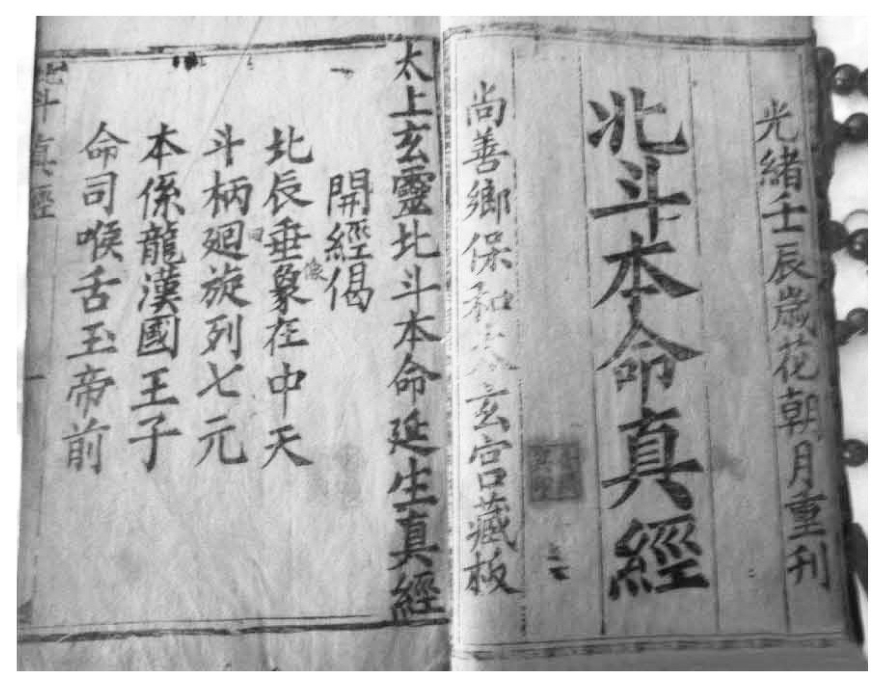 光緒壬辰歲花朝月重刊
北斗本命真經
尚善鄉保和太玄宮藏板
太上玄靈北斗本命延生真經
開經偈
北辰垂象在中天
像
斗柄廻旋列七元
回
本係龍漢國王子
命司喉舌玉帝前
北斗真經
一